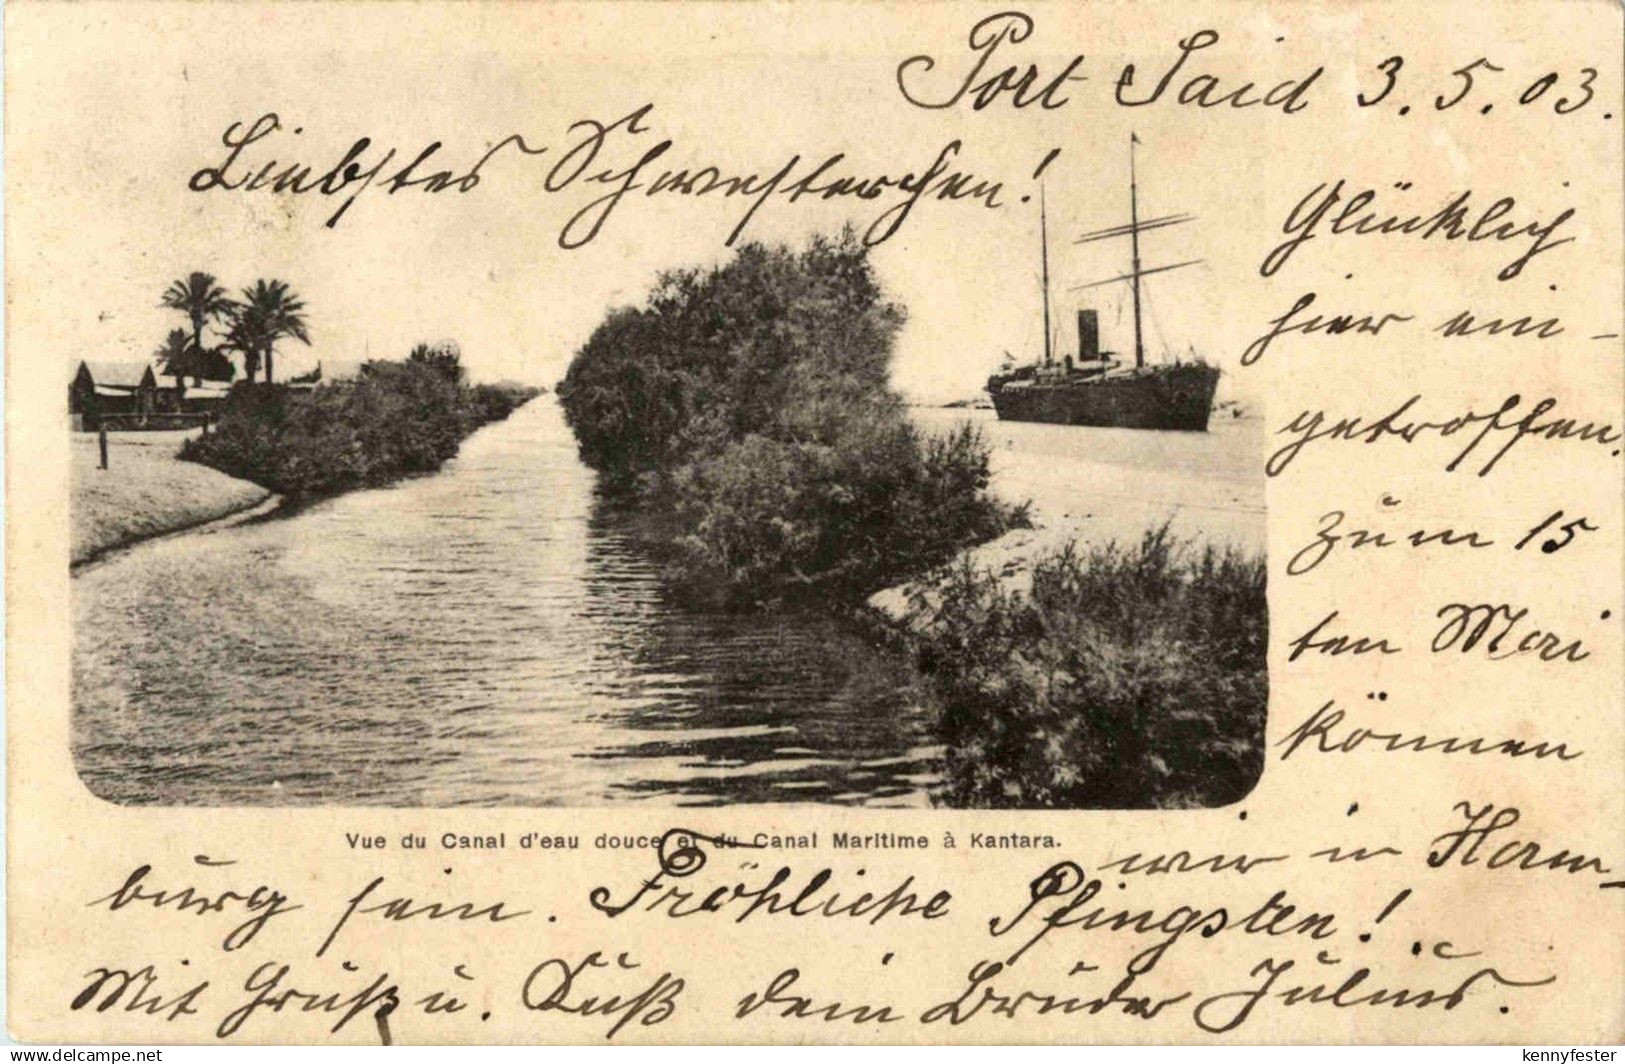 Port Said 3.5.03.
Liebstes Schwesterchen!
Glücklich
hier ein-
getroffen,
zum 15
ten Mai
können
Vue du Canal d'eau douce et du Canal Maritime à Kantara.
wir in Ham-
burg sein. Fröhliche Pfingsten!
Mit Gruß u. Kuß dein Bruder Julius.
delcampe.net
kennyfester